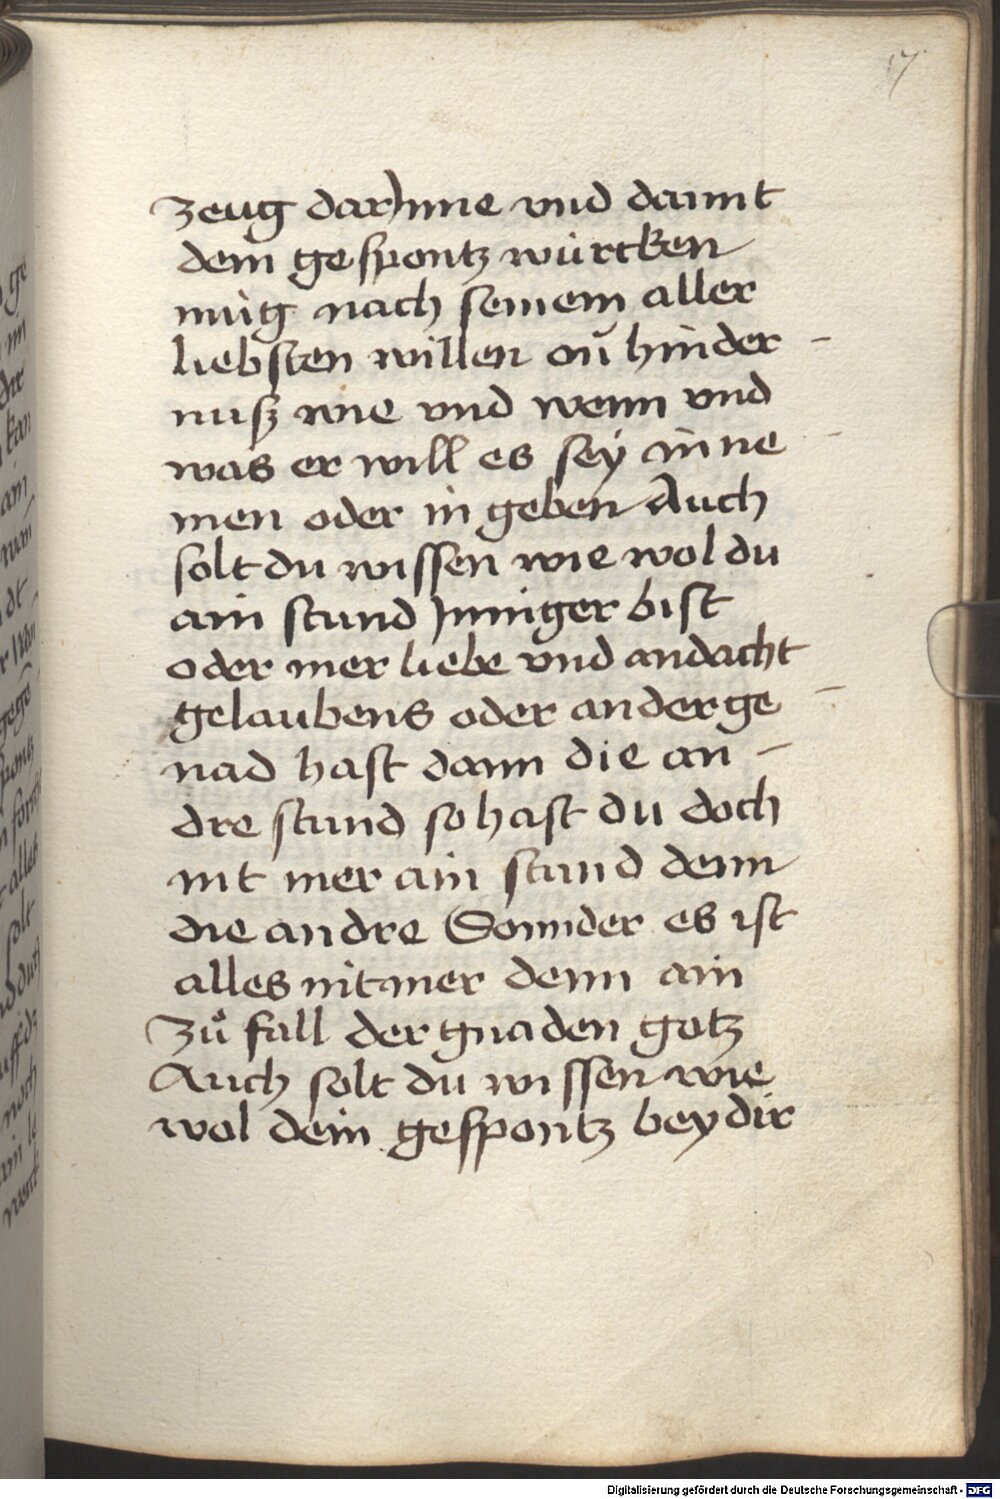 17
zeug darJnne vnd damit
dein gespontz würcken
müg nach seinem aller
liebsten willen on hinder -
nuß wie vnd wenn vnd
was er will es sey ain ne -
men oder in geben Auch
solt du wissen wie wol du
ain stund Jnniger bist
oder mer liebe vnd andacht
gelaubens oder ander ge -
nad hast dann die an -
dre stund so hast du doch
nit mer ain stund denn
die andre Sonnder es ist
alles nit mer denn ain
Zů fall der gnaden gotz
Auch solt du wissen wie
wol dein gespontz bey dir
Digitalisierung gefördert durch die Deutsche Forschungsgemeinschaft - DFG